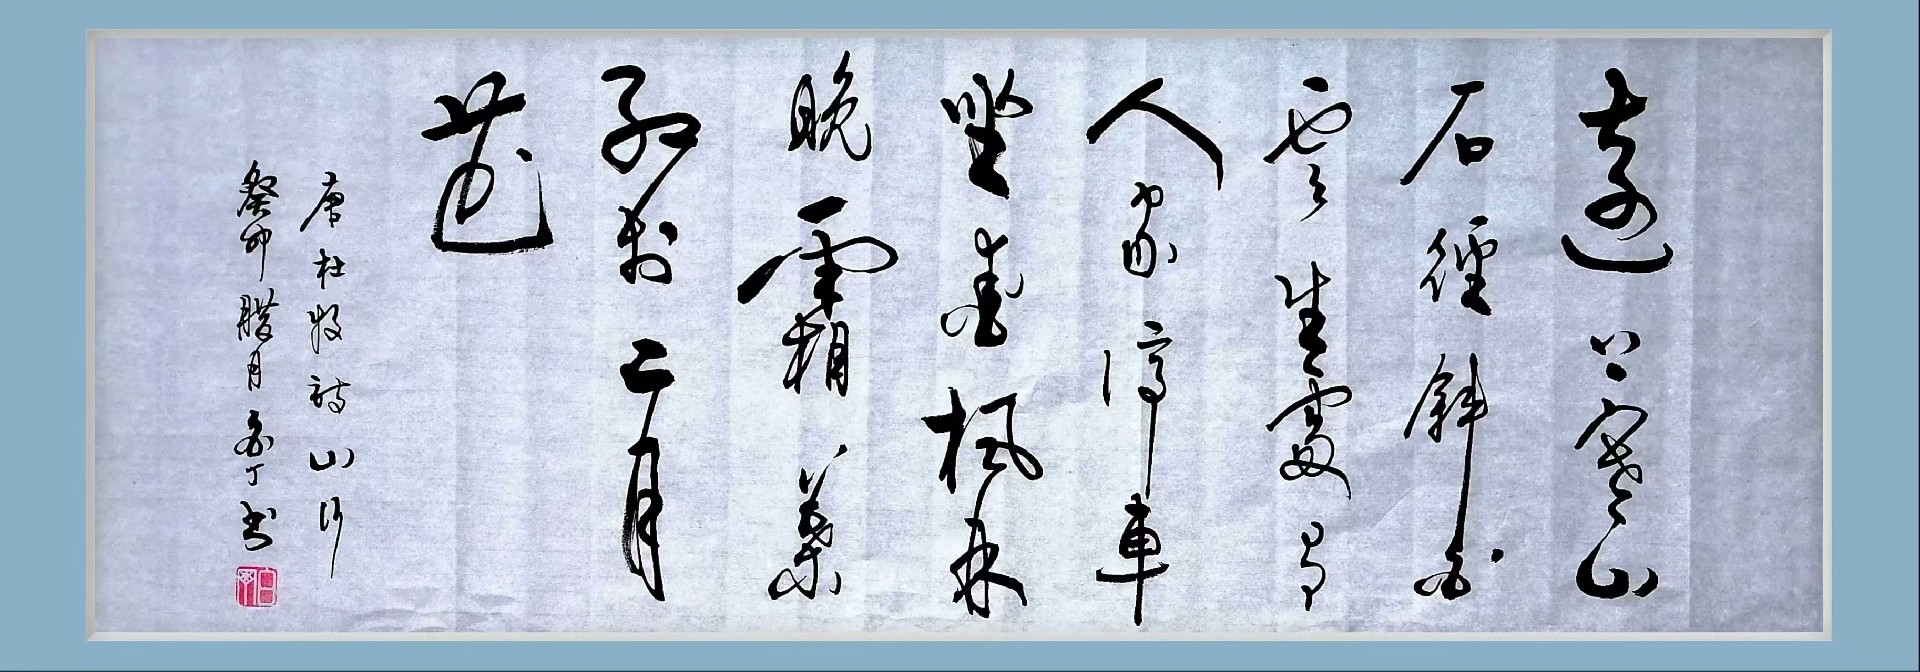 遠上寒山
石徑斜白
雲生處有
人家停車
坐愛楓林
晚霜葉
紅於二月
花
唐杜牧詩山行
癸卯臘月丁书